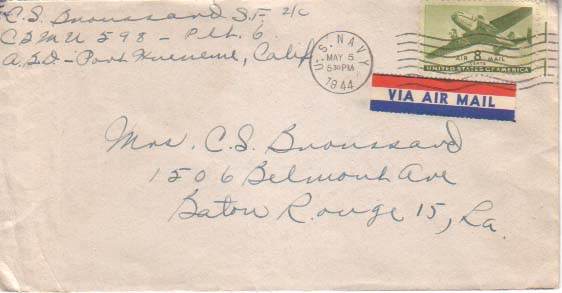 C.S. Broussard S.F. 2/c
CBMU 598 - Plt. 6
A.B.D. - Port Hueneme, Calif
U.S. NAVY
MAY 5
5 30 PM
1944
AIR 8 MAIL
CENTS
UNITED STATES OF AMERICA
VIA AIR MAIL
Mrs. C.S. Broussard
1506 Belmont Ave
Baton Rouge 15, La.